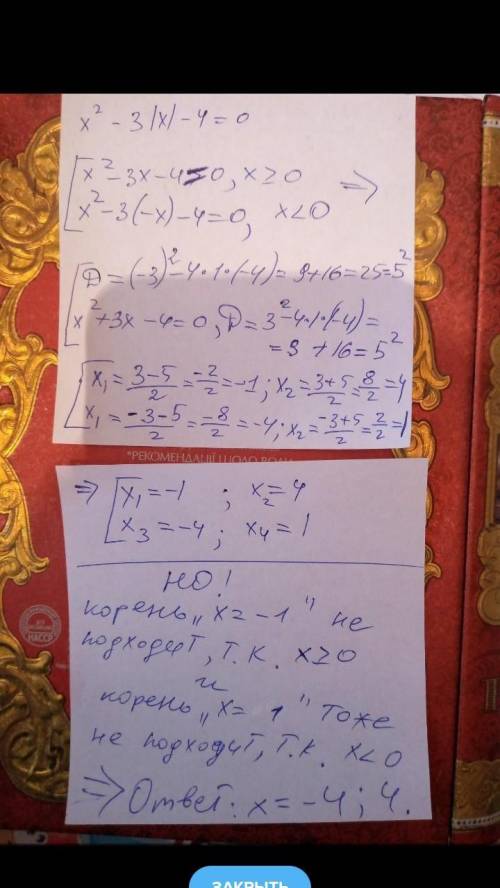 x² - 3|x| - 4 = 0
x² - 3x - 4 = 0, x ≥ 0 ⇒
x² - 3(-x) - 4 = 0, x < 0
D = (-3)² - 4·1·(-4) = 9 + 16 = 25 = 5²
x² + 3x - 4 = 0, D = 3² - 4·1·(-4) =
= 9 + 16 = 5²
x₁ = (3-5)/2 = -2/2 = -1; x₂ = (3+5)/2 = 8/2 = 4
x₁ = (-3-5)/2 = -8/2 = -4; x₂ = (-3+5)/2 = 2/2 = 1
*РЕКОМЕНДАЦІЇ ЩОДО
⇒ x₁ = -1 ; x₂ = 4
x₃ = -4 ; x₄ = 1
НО!
корень „x = -1" не
подходит, т.к. x ≥ 0
и
корень „x = 1" тоже
не подходит, т.к. x < 0
⇒ Ответ: x = -4; 4.
НАССР
ЗАКРЫТЬ